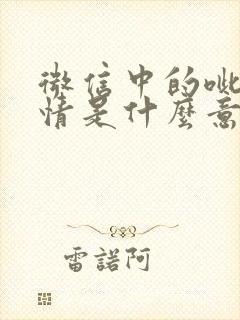 微信中的呲
情是什麼意
雷諾阿